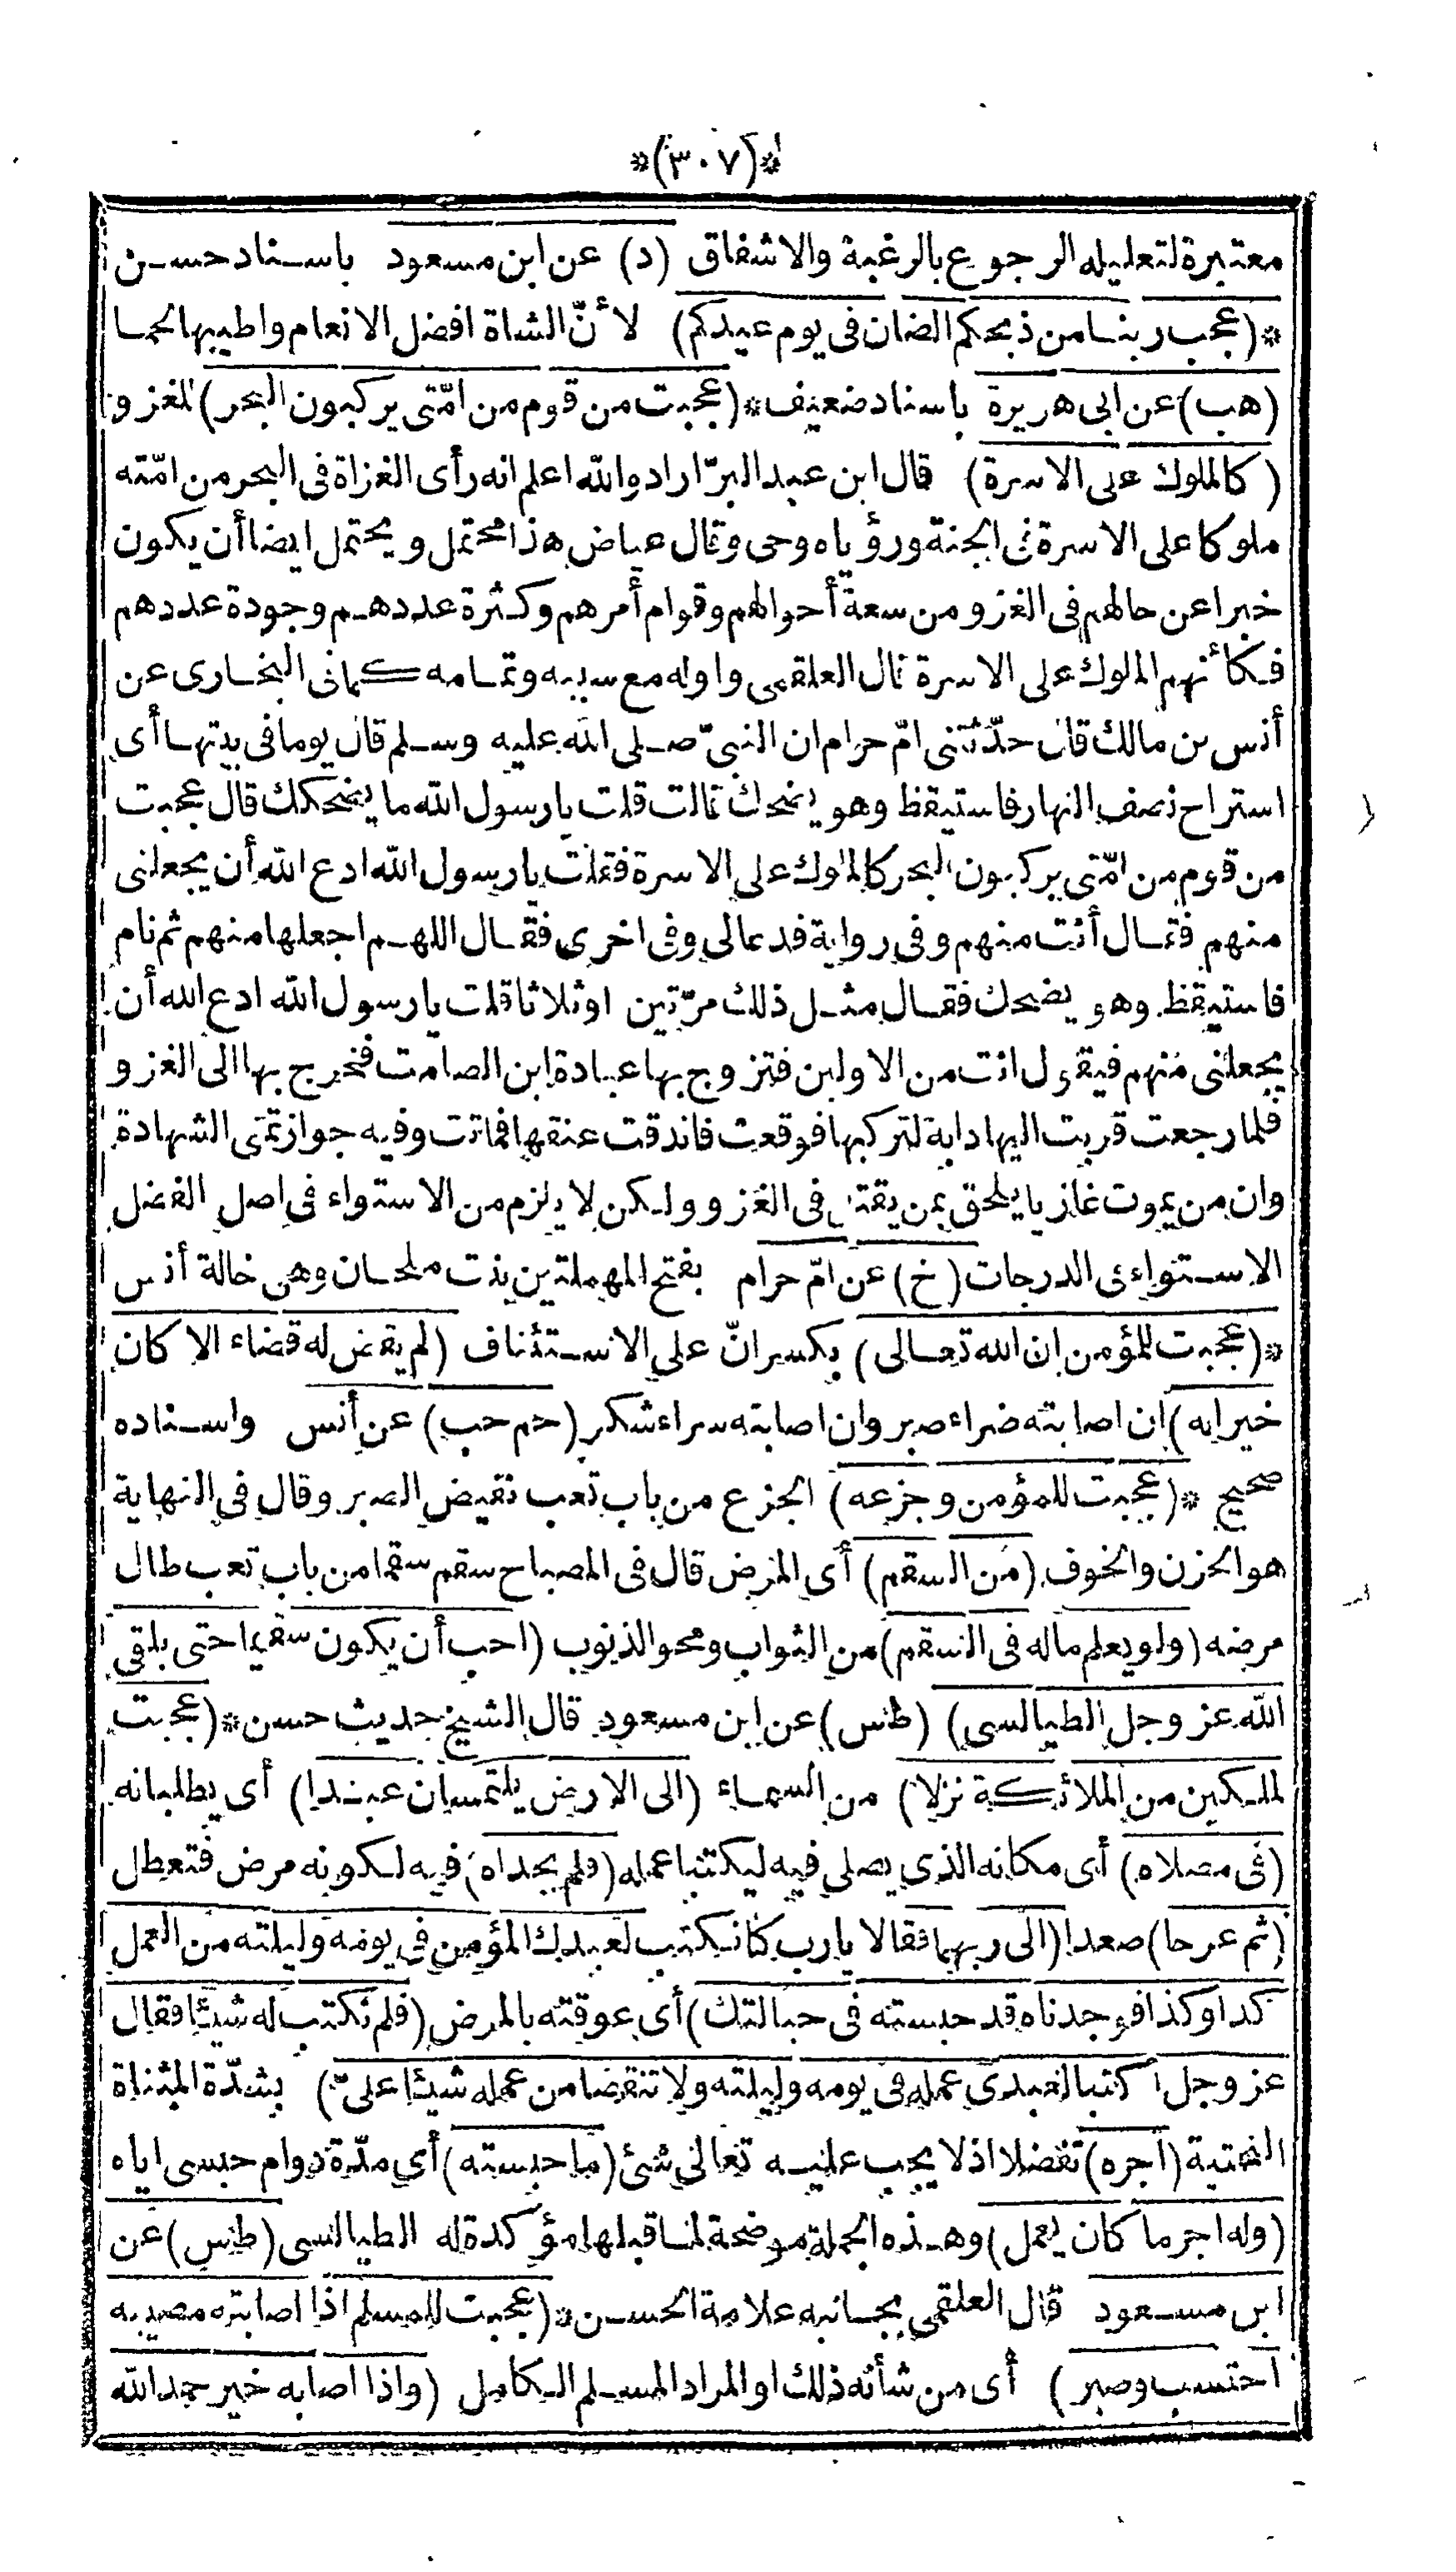 *(٣٠٧)*
معتبرة لتعليله الرجوع بالرغبة والاشفاق (د) عن ابن مسعود باسناد حسن
*(عجب ربنا من ذبحكم الضان فى يوم عيدكم) لأنّ الشاة افضل الانعام واطيبها لحما
(هب) عن ابى هريرة باسناد ضعيف *(عجبت من قوم من امّتى يركبون البحر) للغزو
(كالملوك على الاسرة) قال ابن عبد البرّ اراد والله اعلم انه رأى الغزاة فى البحر من امّته
ملوكا على الاسرة فى الجنة ورؤياه وحى وقال عياض هذا محتمل ويحتمل ايضا أن يكون
خبرا عن حالهم فى الغزو من سعة أحوالهم وقوام أمرهم وكثرة عددهم وجودة عددهم
فكأنهم الملوك على الاسرة قال العلقمى واوله مع سببه وتمامه كما فى البخارى عن
أنس بن مالك قال حدّثتنى امّ حرام ان النبىّ صلى الله عليه وسلم قال يوما فى بيتها أى
استراح نصف النهار فاستيقظ وهو يضحك قالت قلت يارسول الله ما يضحكك قال عجبت
من قوم من امّتى يركبون البحر كالملوك على الاسرة فقلت يارسول الله ادع الله أن يجعلنى
منهم فقال أنت منهم وفى رواية فدعا لى وفى اخرى فقال اللهم اجعلها منهم ثم نام
فاستيقظ وهو يضحك فقال مثل ذلك مرّتين اوثلاثا قلت يارسول الله ادع الله أن
يجعلنى منهم فيقول انت من الاولين فتزوج بها عبادة ابن الصامت فخرج بها الى الغزو
فلما رجعت قربت اليها دابة لتركبها فوقعت فاندقت عنقها فماتت وفيه جواز تمنى الشهادة
وان من يموت غازيا يلحق بمن يقتل فى الغزو ولكن لا يلزم من الاستواء فى اصل الفضل
الاستواء فى الدرجات (خ) عن امّ حرام بفتح المهملتين بنت ملحان وهى خالة أنس
*(عجبت للمؤمن ان الله تعالى) بكسر انّ على الاستئناف (لم يقض له قضاء الا كان
خيرا له) ان اصابته ضراء صبر وان اصابته سراء شكر (حم حب) عن أنس واسناده
صحيح *(عجبت للمؤمن وجزعه) الجزع من باب تعب نقيض الصبر وقال فى النهاية
هو الحزن والخوف (من السقم) أى المرض قال فى المصباح سقم سقما من باب تعب طال
مرضه (ولو يعلم ماله فى السقم) من الثواب ومحو الذنوب (احب أن يكون سقيما حتى يلقى
الله عز وجل الطيالسى) (طس) عن ابن مسعود قال الشيخ حديث حسن *(عجبت
لملكين من الملائكة نزلا) من السماء (الى الارض يلتمسان عبدا) أى يطلبانه
(فى مصلاه) أى مكانه الذى يصلى فيه ليكتبا عمله (فلم يجداه) فيه لكونه مرض فتعطل
(ثم عرجا) صعدا (الى ربهما فقالا يارب كنا نكتب لعبدك المؤمن فى يومه وليلته من العمل
كذا وكذا فوجدناه قد حبسته فى حبالتك) أى عوقته بالمرض (فلم نكتب له شيئا فقال
عز وجل اكتبا لعبدى عمله فى يومه وليلته ولا تنقصا من عمله شيئا علىّ) بشدّة المثناة
التحتية (اجره) تفضلا اذ لا يجب عليه تعالى شئ (ما حبسته) أى مدّة دوام حبسى اياه
(وله اجر ما كان يعمل) وهذه الجملة موضحة لما قبلها مؤكدة له الطيالسى (طس) عن
ابن مسعود قال العلقمى بجانبه علامة الحسن *(عجبت للمسلم اذا اصابته مصيبة
احتسب وصبر) أى من شأنه ذلك او المراد المسلم الكامل (واذا اصابه خير حمد الله